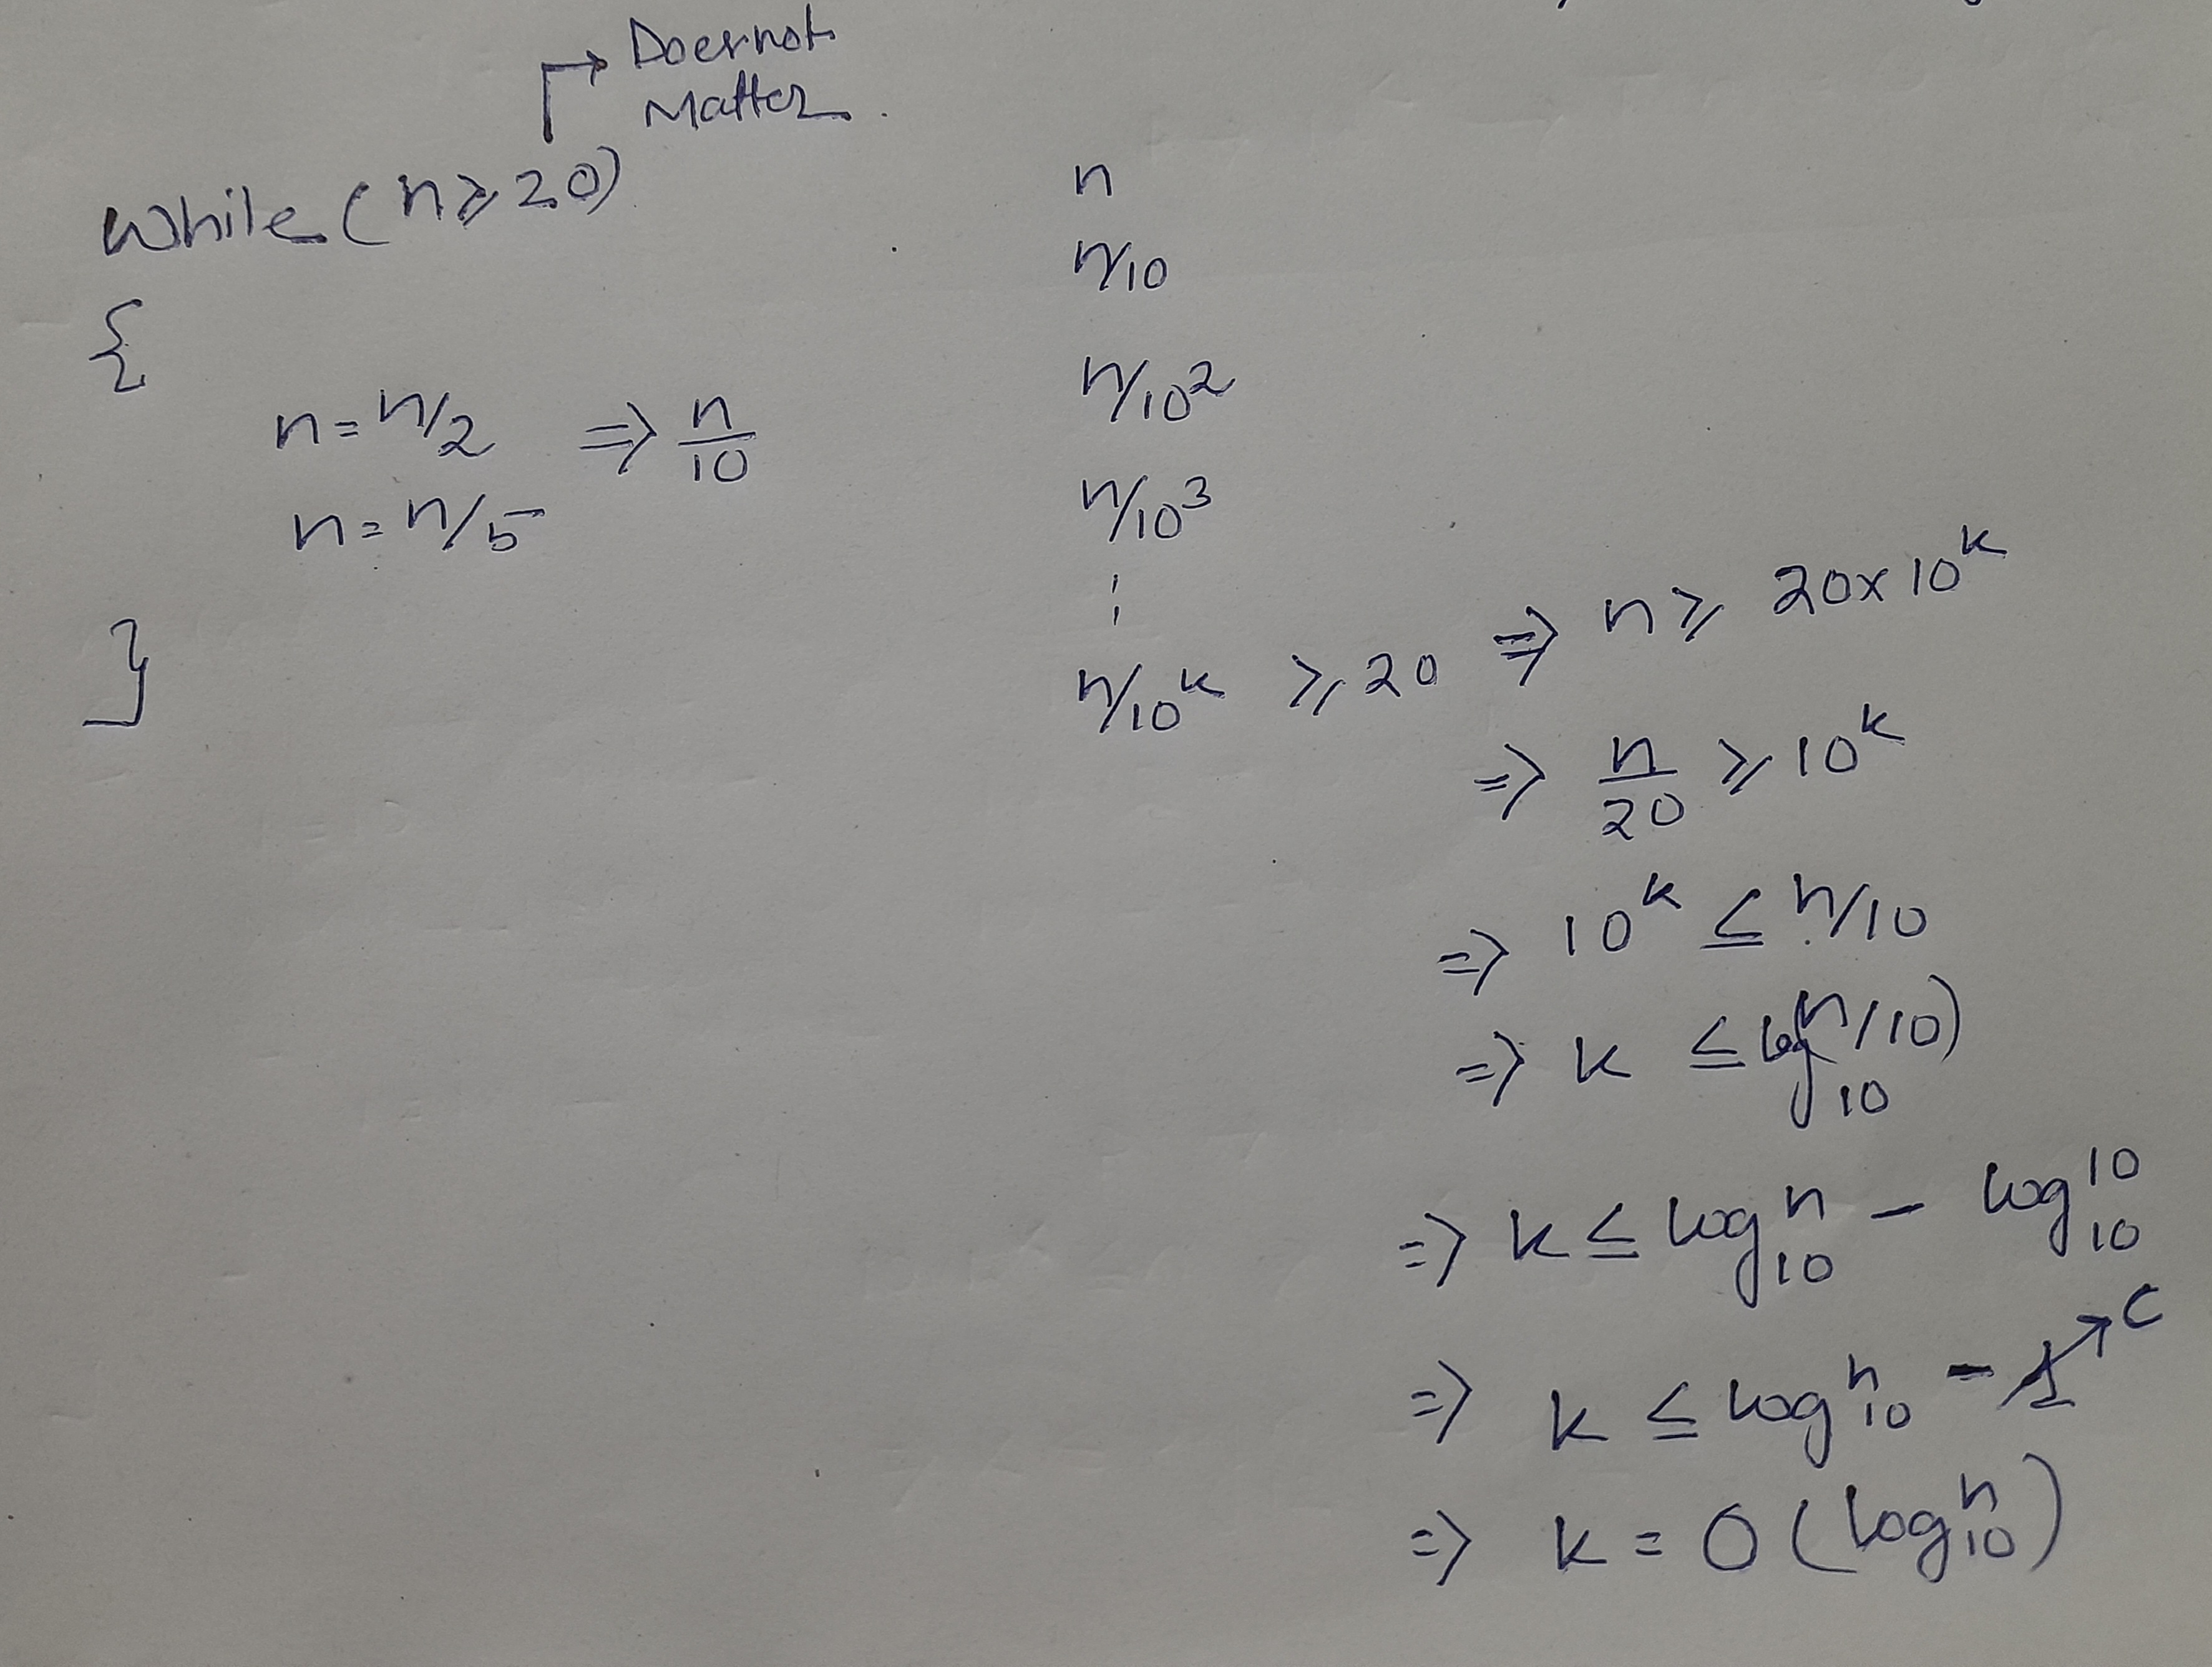 Doesnot
Matter.
while (n ≥ 20)
{
n = n/2 ⇒ n/10
n = n/5
}
n
n/10
n/10²
n/10³
⋮
n/10ᵏ ≥ 20 ⇒ n ≥ 20 × 10ᵏ
⇒ n/20 ≥ 10ᵏ
⇒ 10ᵏ ≤ n/10
⇒ k ≤ log₁₀(n/10)
⇒ k ≤ log₁₀ⁿ − log₁₀¹⁰
⇒ k ≤ log₁₀ⁿ − 1 → C
⇒ k = O(log₁₀ⁿ)